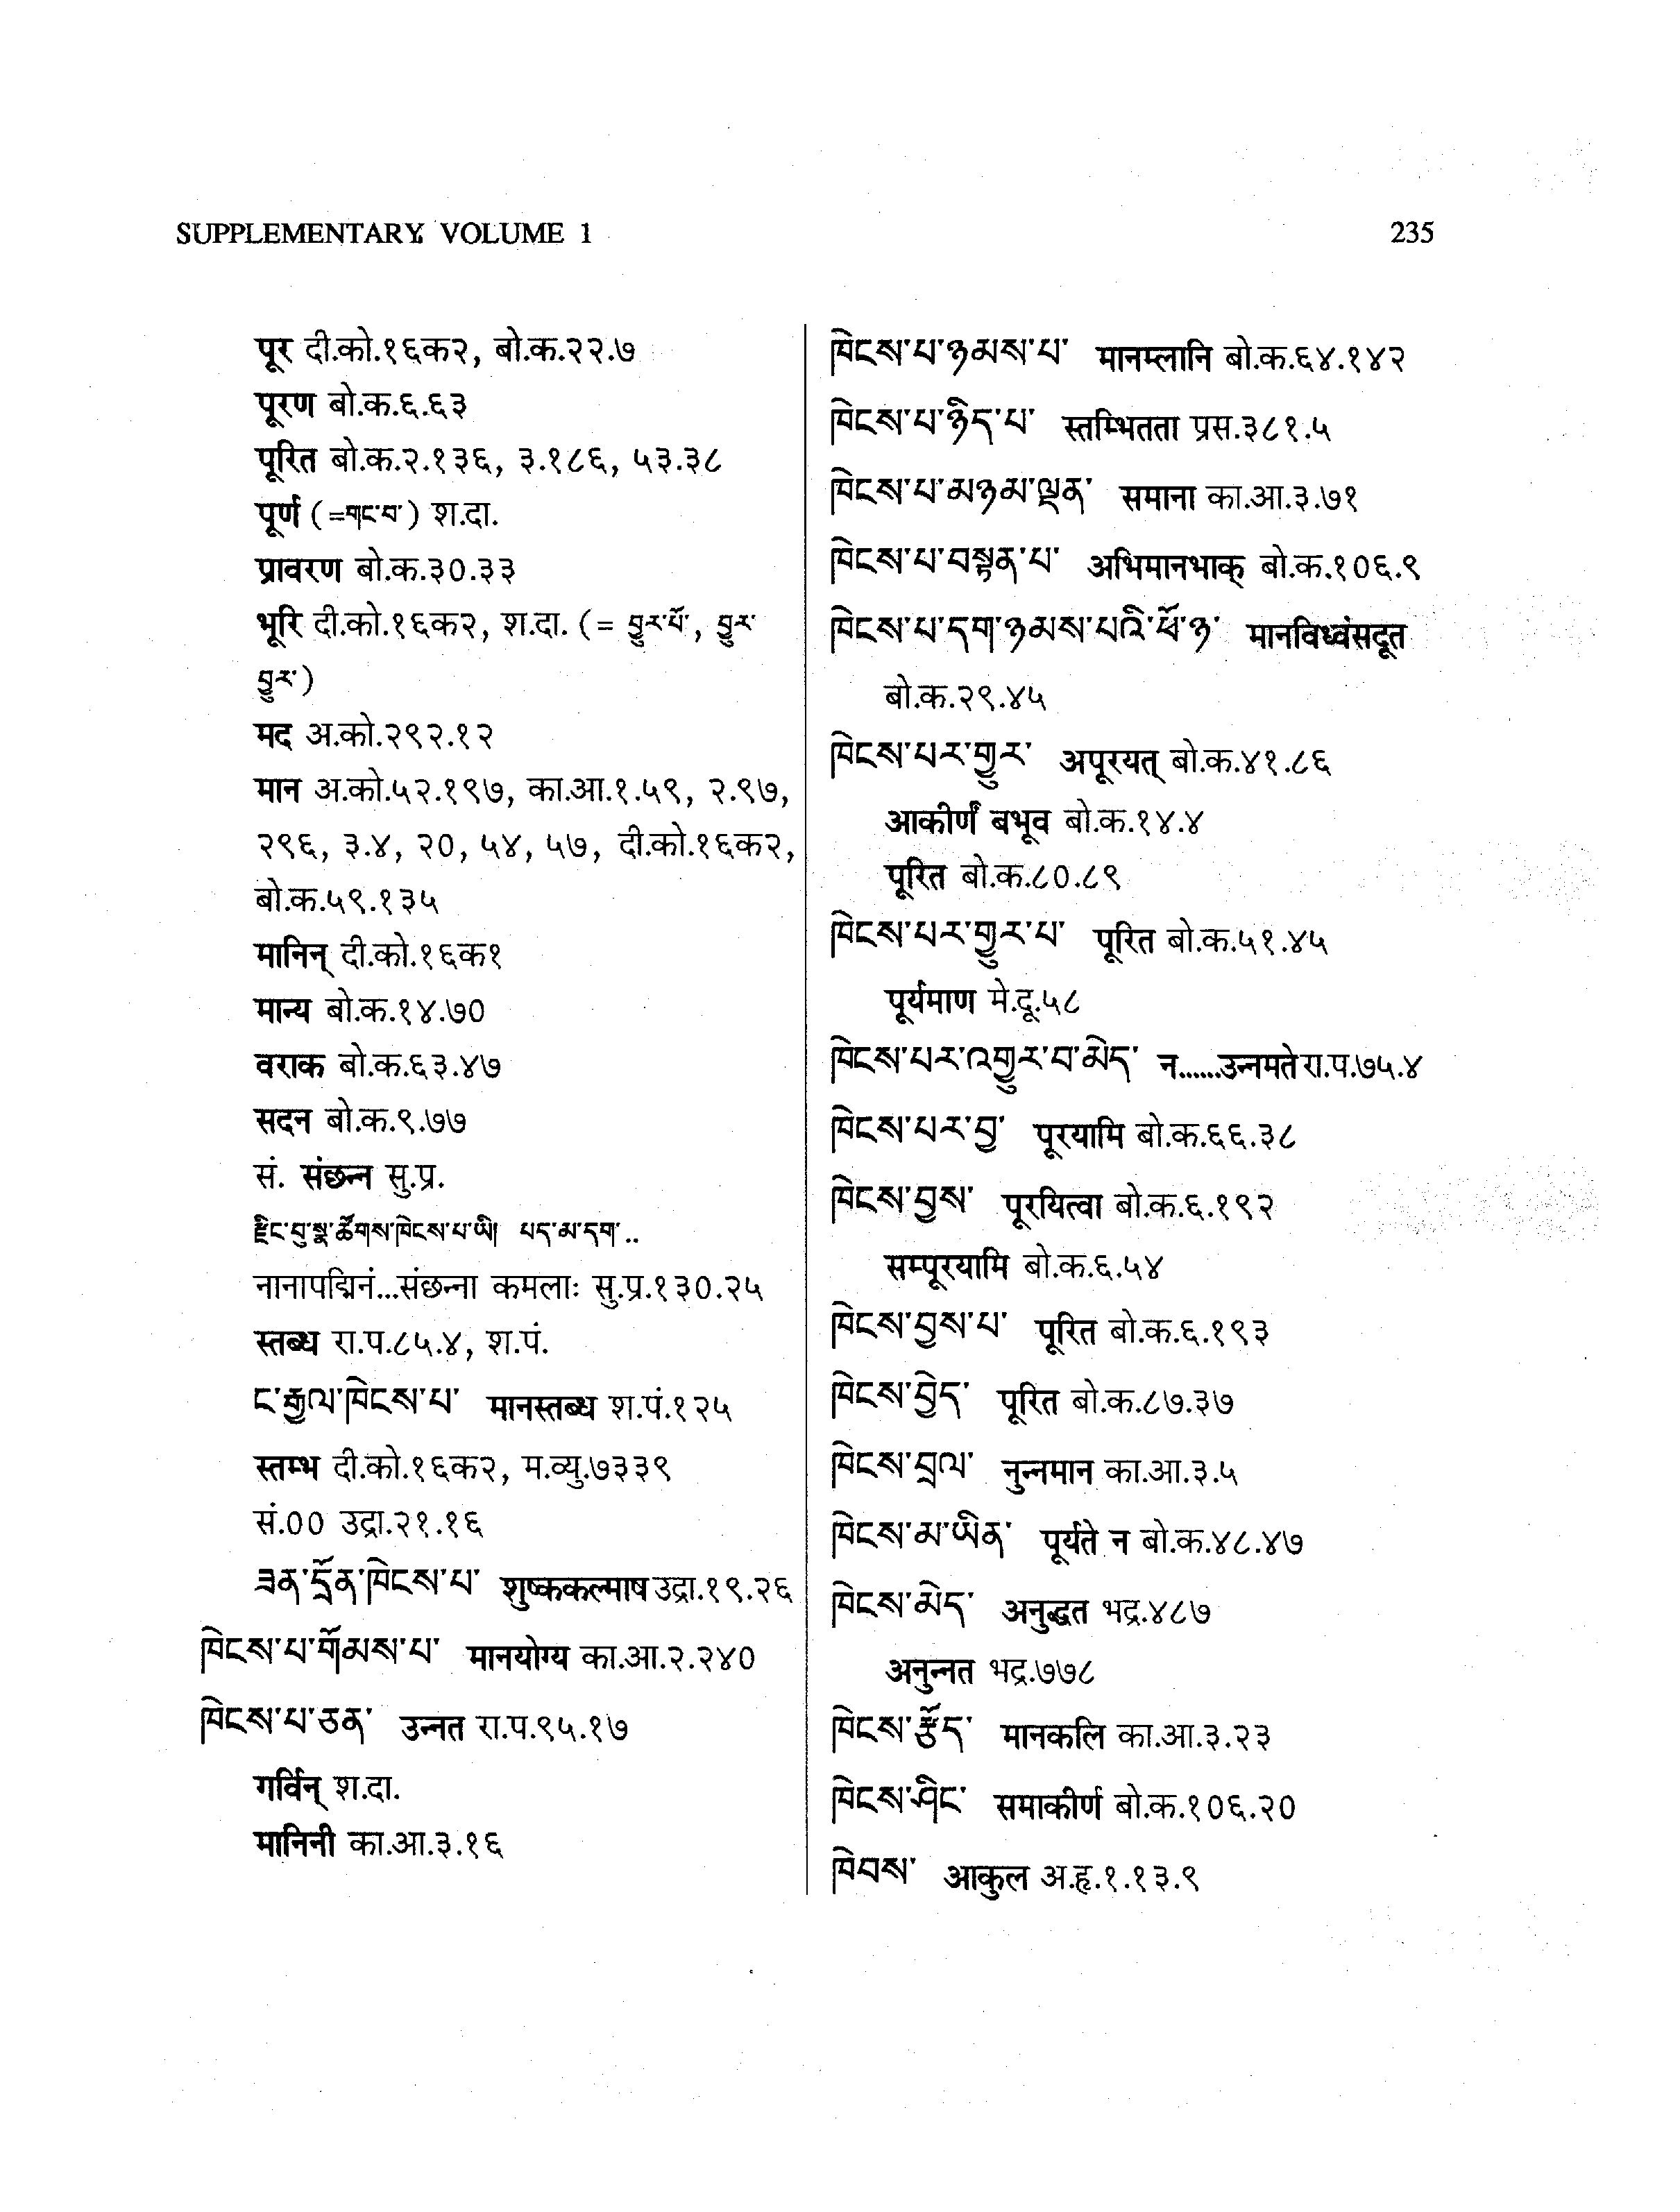 SUPPLEMENTARY VOLUME 1
235
पूर दी.को.१६क२, बो.क.२२.७
पूरण बो.क.६.६३
पूरित बो.क.२.१३६, ३.१८६, ५३.३८
पूर्ण (=གང་བ་) श.दा.
प्रावरण बो.क.३०.३३
भूरि दी.को.१६क२, श.दा. (= བྱུར་པོ་, བྱུར་
བྱུར་)
मद अ.को.२९२.१२
मान अ.को.५२.१९७, का.आ.१.५९, २.९७,
२९६, ३.४, २०, ५४, ५७, दी.को.१६क२,
बो.क.५९.१३५
मानिन् दी.को.१६क१
मान्य बो.क.१४.७०
वराक बो.क.६३.४७
सदन बो.क.९.७७
सं. संछन्न सु.प्र.
རྫིང་བུ་སྣ་ཚོགས་ཁེངས་པ་ཡི། པད་མ་དག་..
नानापद्मिनं...संछन्ना कमलाः सु.प्र.१३०.२५
स्तब्ध रा.प.८५.४, श.पं.
ང་རྒྱལ་ཁེངས་པ་ मानस्तब्ध श.पं.१२५
स्तम्भ दी.को.१६क२, म.व्यु.७३३९
सं.०० उद्रा.२१.१६
ཟན་དྲོན་ཁེངས་པ་ शुष्ककल्माष उद्रा.१९.२६
ཁེངས་པ་གོམས་པ་ मानयोग्य का.आ.२.२४०
ཁེངས་པ་ཅན་ उन्नत रा.प.९५.१७
गर्विन् श.दा.
मानिनी का.आ.३.१६
ཁེངས་པ་ཉམས་པ་ मानम्लानि बो.क.६४.१४२
ཁེངས་པ་ཉིད་པ་ स्तम्भितता प्रस.३८१.५
ཁེངས་པ་མཉམ་ལྡན་ समाना का.आ.३.७१
ཁེངས་པ་བསྟན་པ་ अभिमानभाक् बो.क.१०६.९
ཁེངས་པ་དག་ཉམས་པའི་ཕོ་ཉ་ मानविध्वंसदूत
बो.क.२९.४५
ཁེངས་པར་གྱུར་ अपूरयत् बो.क.४१.८६
आकीर्णं बभूव बो.क.१४.४
पूरित बो.क.८०.८९
ཁེངས་པར་གྱུར་པ་ पूरित बो.क.५१.४५
पूर्यमाण मे.दू.५८
ཁེངས་པར་འགྱུར་བ་མེད་ न......उन्नमते रा.प.७५.४
ཁེངས་པར་བྱ་ पूरयामि बो.क.६६.३८
ཁེངས་བྱས་ पूरयित्वा बो.क.६.१९२
सम्पूरयामि बो.क.६.५४
ཁེངས་བྱས་པ་ पूरित बो.क.६.१९३
ཁེངས་བྱེད་ पूरित बो.क.८७.३७
ཁེངས་བྲལ་ नुन्नमान का.आ.३.५
ཁེངས་མ་ཡིན་ पूर्यते न बो.क.४८.४७
ཁེངས་མེད་ अनुद्धत भद्र.४८७
अनुन्नत भद्र.७७८
ཁེངས་རྩོད་ मानकलि का.आ.३.२३
ཁེངས་ཤིང་ समाकीर्ण बो.क.१०६.२०
ཁེབས་ आकुल अ.हृ.१.१३.९